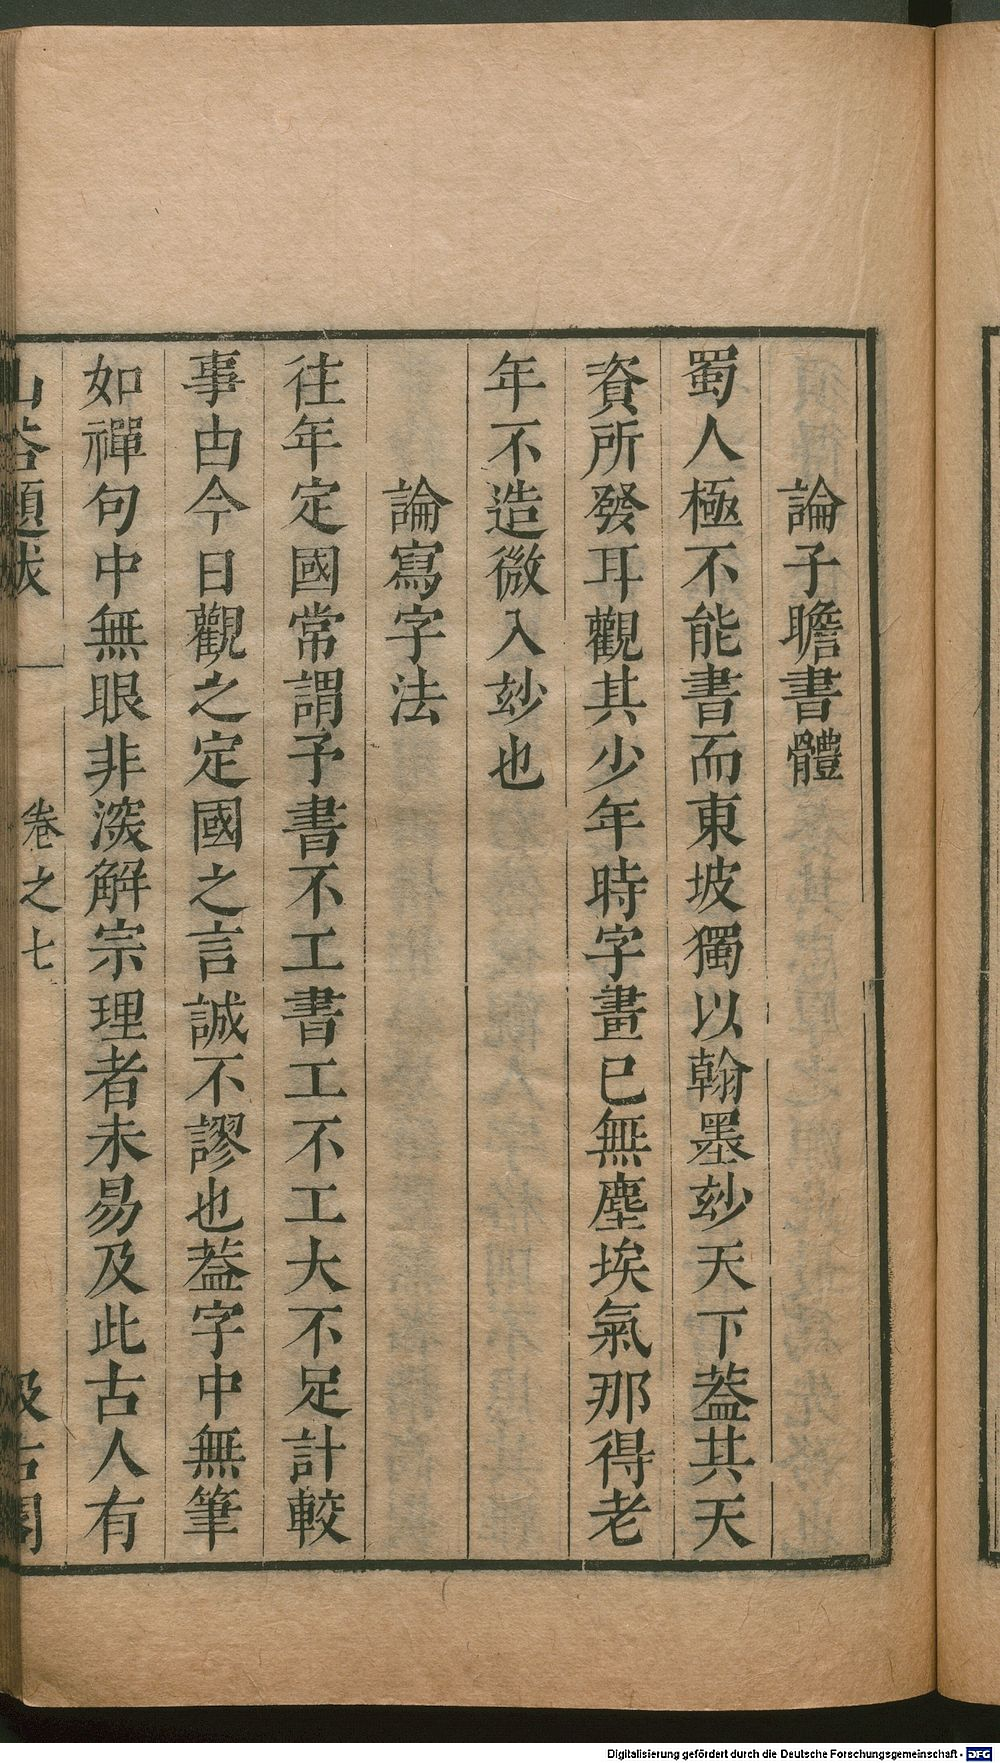 論子瞻書體
蜀人極不能書而東坡獨以翰墨玅天下葢其天
資所發耳觀其少年時字畫已無塵埃氣那得老
年不造微入玅也
論寫字法
往年定國常謂予書不工書工不工大不足計較
事古今日觀之定國之言誠不謬也葢字中無筆
如禪句中無眼非深解宗理者未易及此古人有
山谷題跋
卷之七
汲古閣
Digitalisierung gefördert durch die Deutsche Forschungsgemeinschaft - DFG